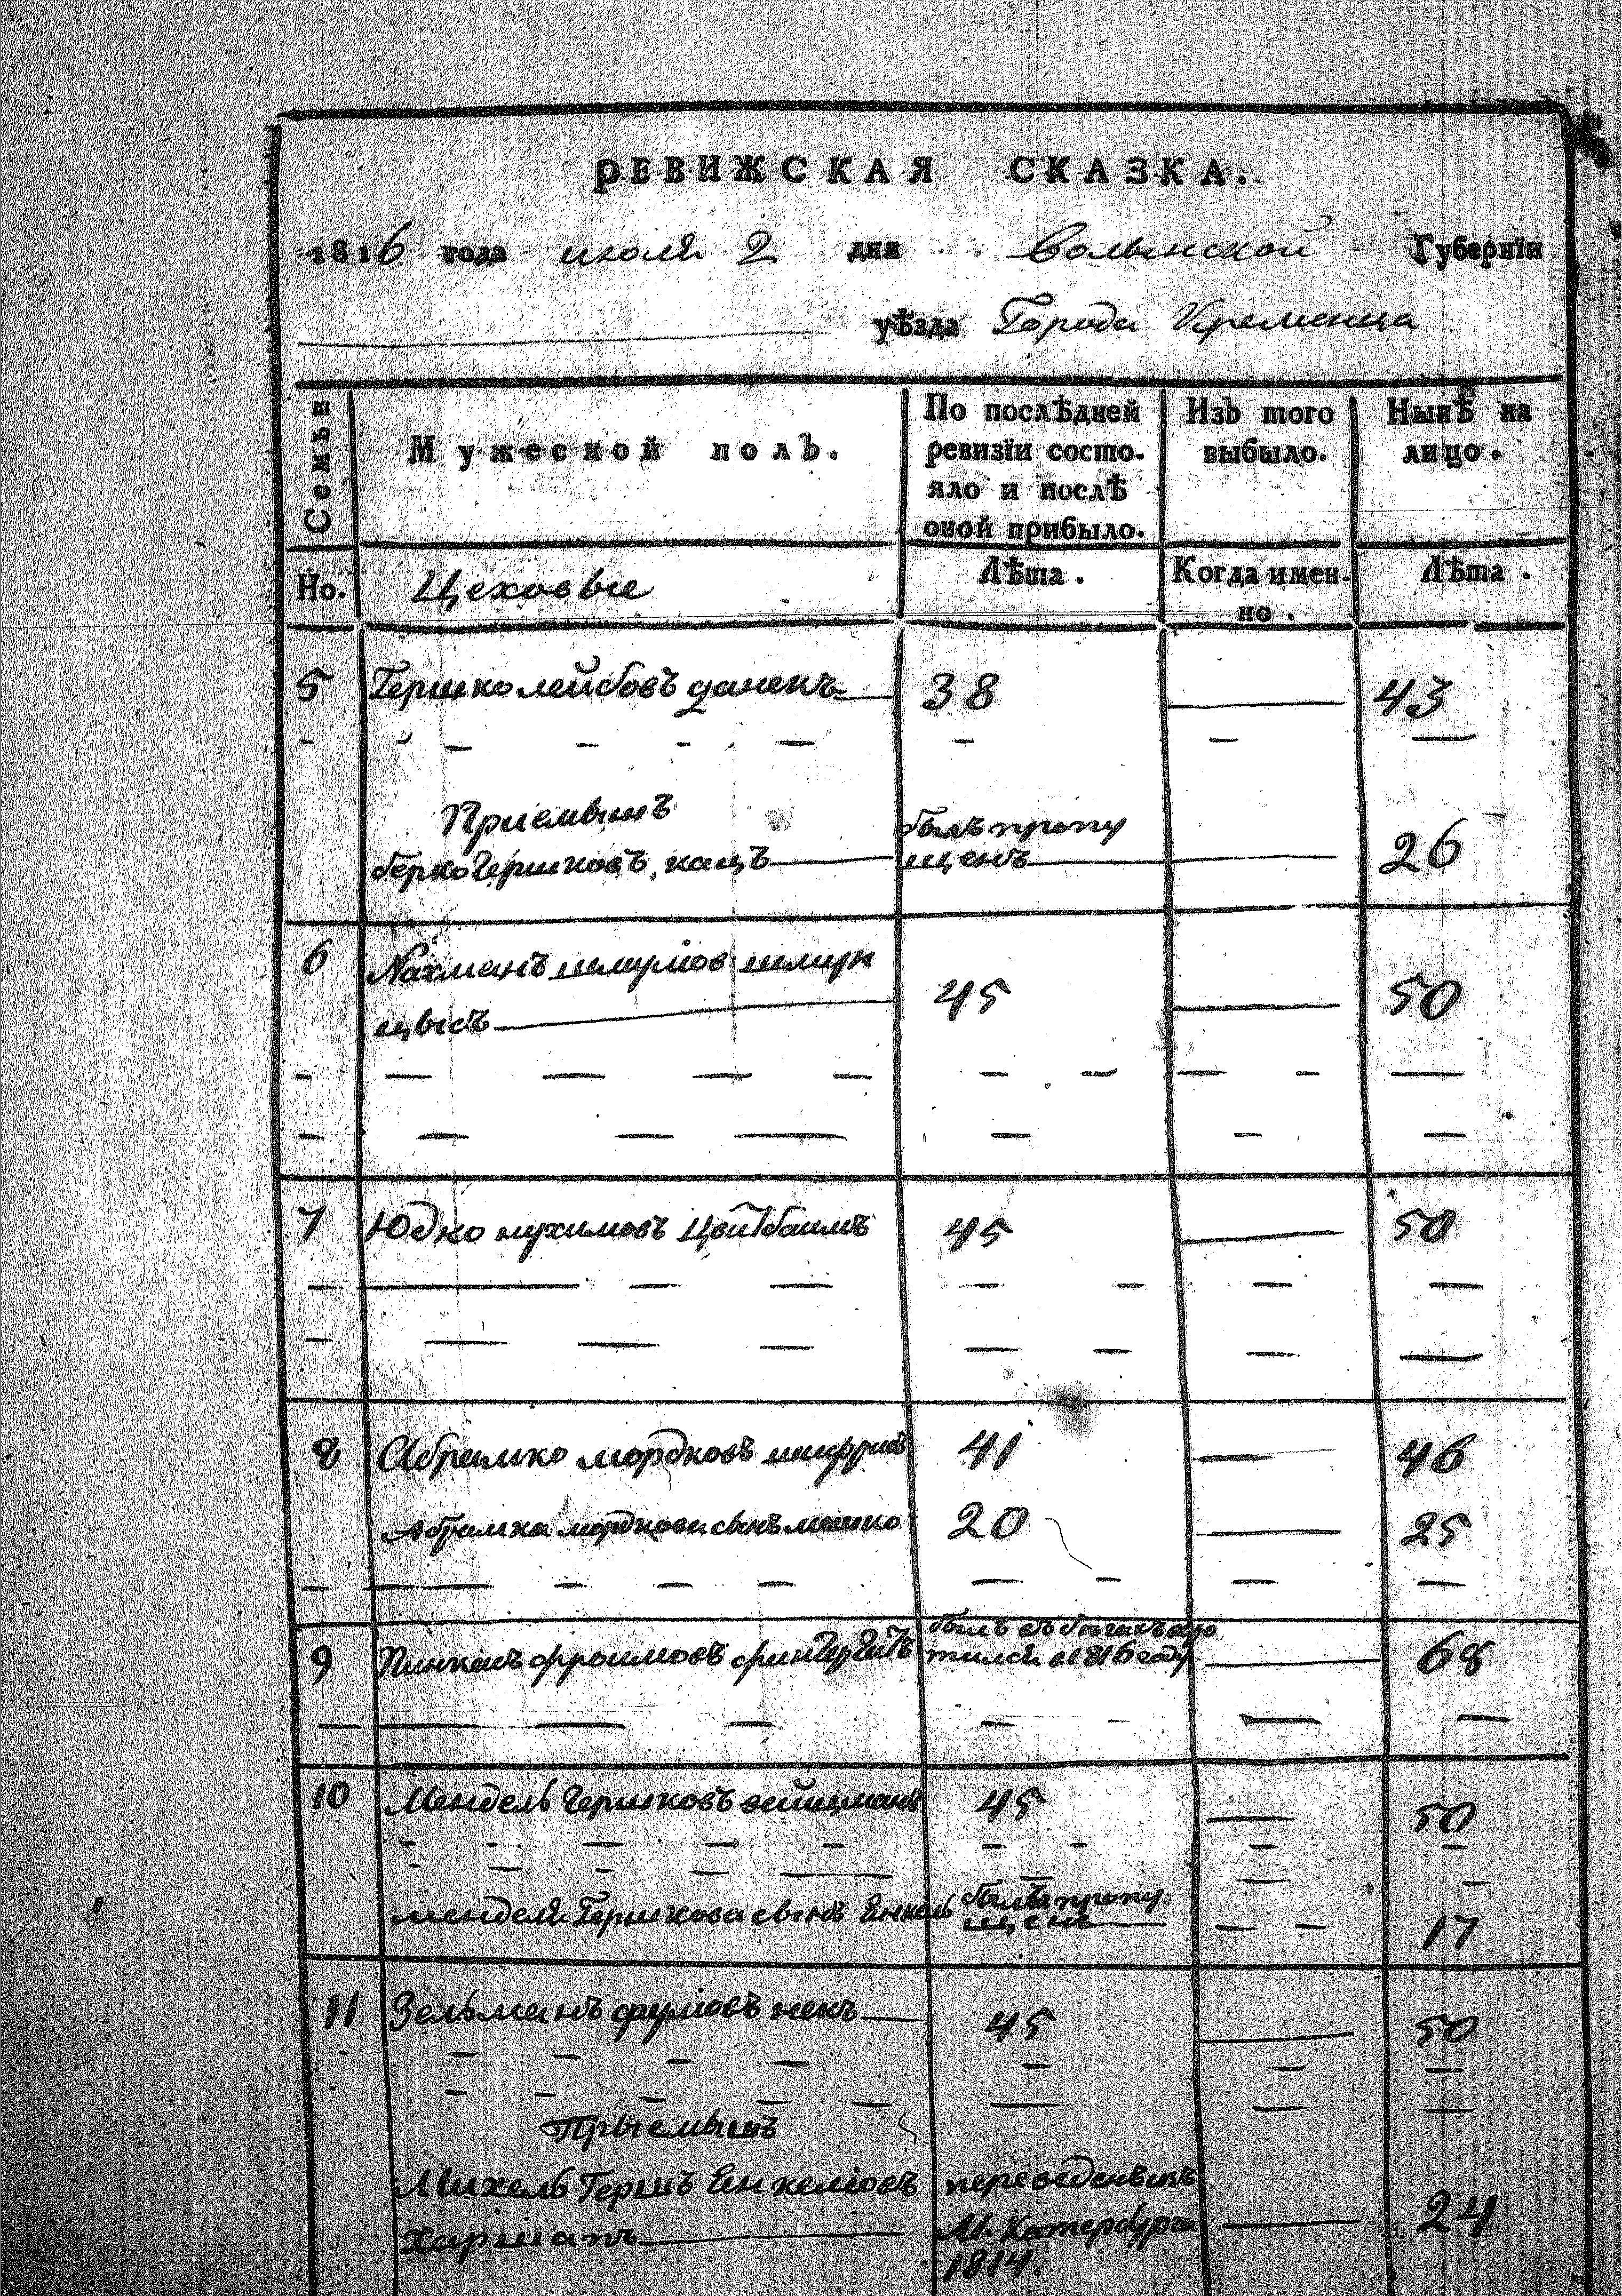 РЕВИЖСКАЯ СКАЗКА.
1816 года июля 2 дня Волынской Губернїи
уѣзда Города Кременца
Семьи
Мужеской полъ.
По послѣдней ревизїи состояло и послѣ оной прибыло.
Изъ того выбыло.
Нынѣ на лицо.
Но.
Цеховые
Лѣта.
Когда имен-
но.
Лѣта.
5 Гершко лейбовъ данекъ 38 43
Приемышъ
берко Гершковъ кацъ былъ пропу
щенъ 26
6 Нахманъ шмулiов
цысъ 45 50
7 Юдко нухимовъ Цвитбаимъ 45 50
8 Абрамко мордковъ 41 46
Абрамка мордкова сынъ мошко 20 25
9 фроимовъ былъ въ
1816 году 68
10 Мендель Гершковъ вейцманъ 45 50
менделя Гершкова сынъ Енкель былъ пропу
щенъ 17
11 Зельманъ 45 50
Прыемышъ
Михель Гершъ Енкелiовъ переведенъ изъ
М. Катербурга 24
1814.